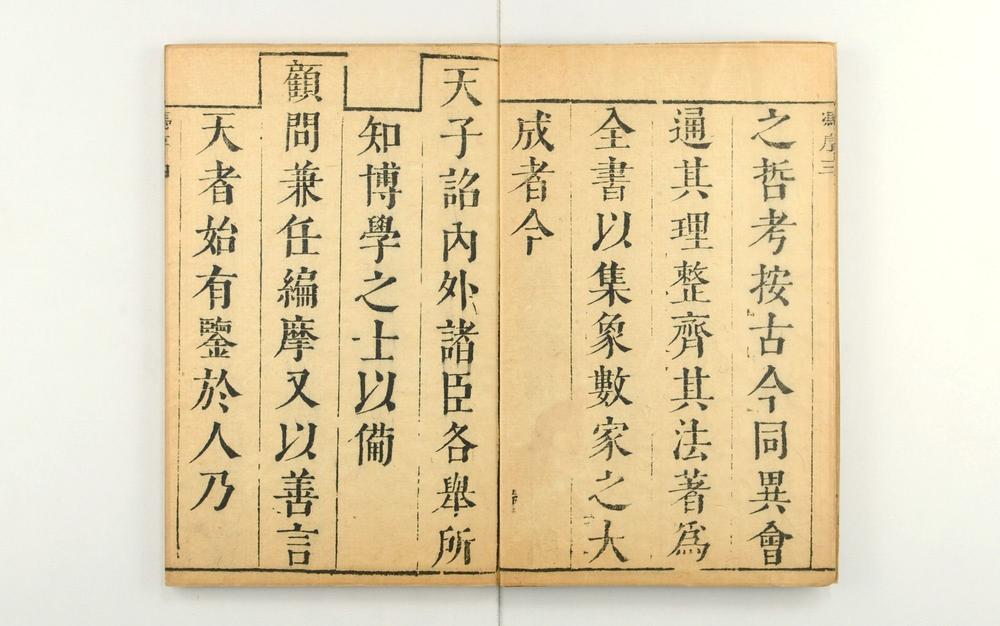 序三
之哲考按古今同異會
通其理整齊其法著爲
全書以集象數家之大
成者今
天子詔内外諸臣各舉所
知博學之士以備
顧問兼任編摩又以善言
天者始有鑒於人乃